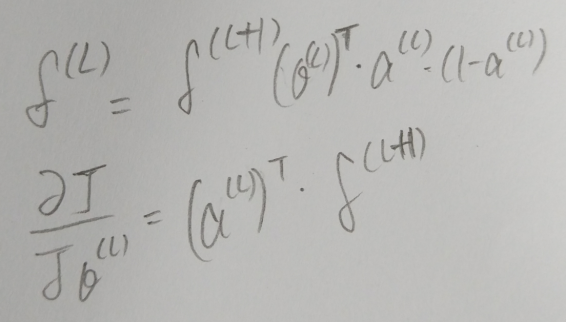 δ^(L) = δ^(L+1) (θ^(L))^T · a^(L) · (1-a^(L))
∂J/∂θ^(L) = (a^(L))^T · δ^(L+1)